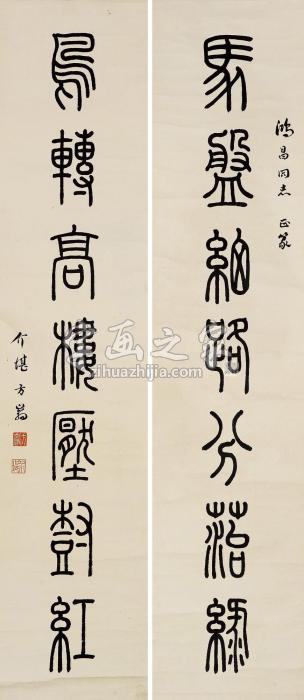 鴻昌同志 正篆
馬盤細路分菭綠
鳥轉高樓壓尌紅
介堪方巖
书画之家
zihuazhijia.com